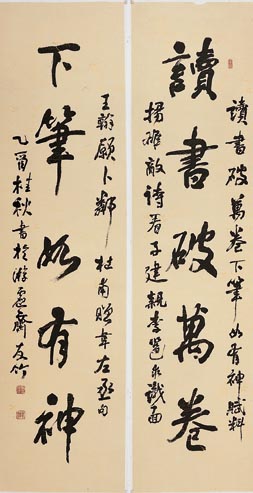 讀書破萬卷下筆如有神賦料
讀書破萬卷
揚雄敵詩看子建親李邕求識面
王翰願卜鄰 杜甫贈韋左丞句
下筆如有神
乙酉桂秋書於游齋友竹